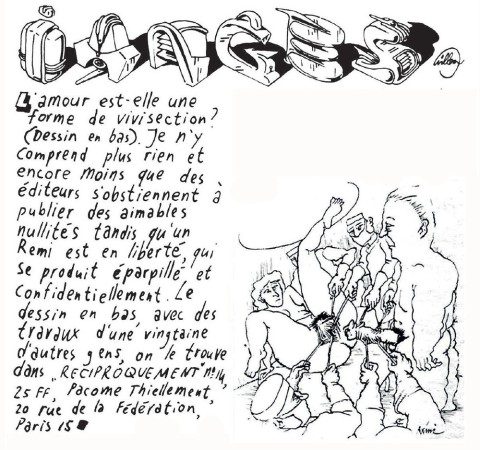 IMAGES
Willem
L'amour est-elle une
forme de vivisection?
(Dessin en bas). Je n'y
comprend plus rien et
encore moins que des
éditeurs s'obstiennent à
publier des aimables
nullités tandis qu'un
Remi est en liberté, qui
se produit éparpillé et
confidentiellement. Le
dessin en bas, avec des
travaux d'une vingtaine
d'autres gens, on le trouve
dans „RECIPROQUEMENT" no 14,
25 FF, Pacome Thiellement,
20 rue de la Fédération,
Paris 15
Rémi